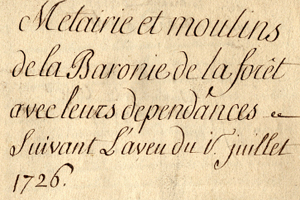 Metairie et moulins
de la Baronie de la forêt
avec leurs dependances
Suivant L'aveu du juillet
1726.